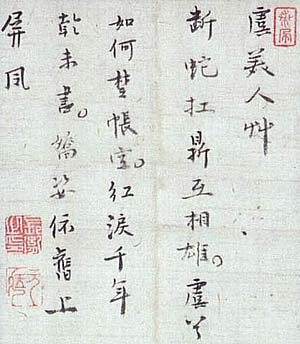 虞美人艸
断蛇扛鼎互相雄。虞兮
如何楚帳空。紅淚千年
乾未盡。嬌姿依舊上
屏風